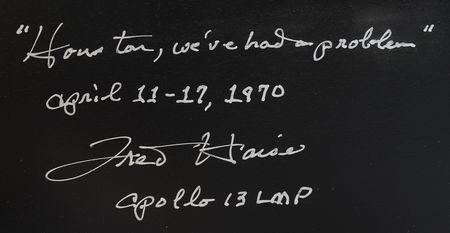 "Houston, we've had a problem"
april 11-17, 1970
Fred Haise
apollo 13 LMP